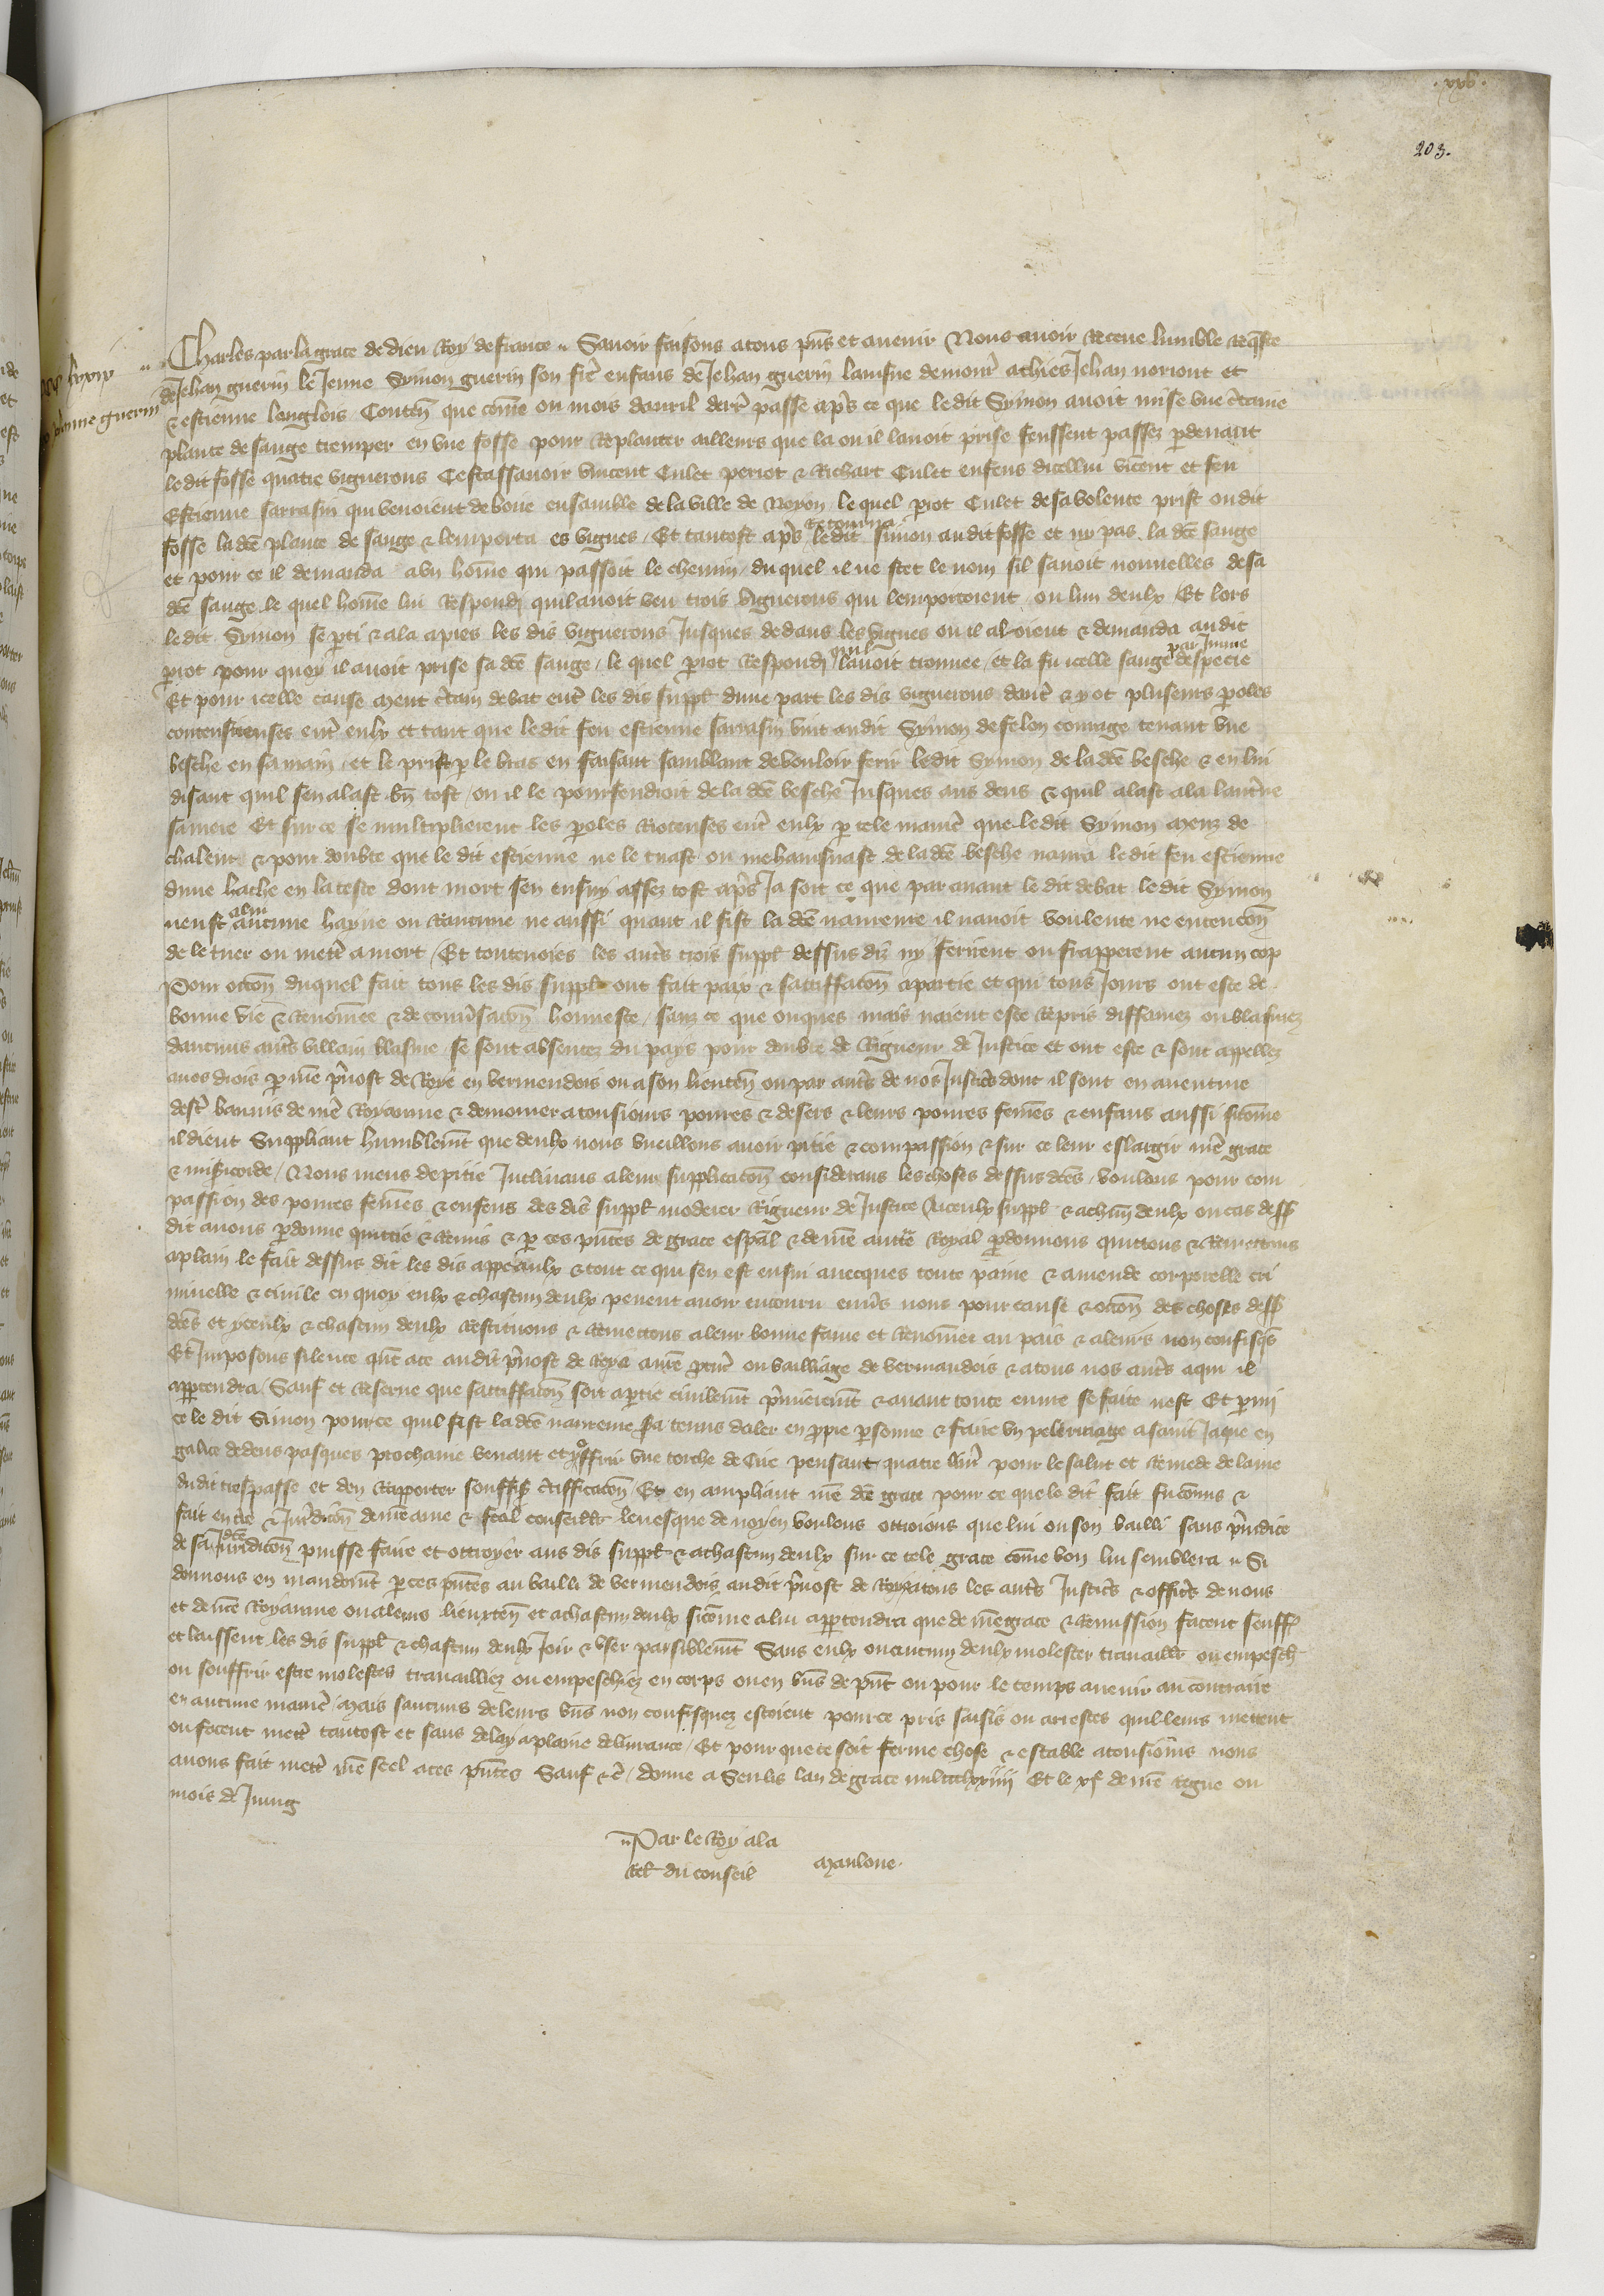 .xxv.
203.
Charles par la grace de dieu Roy de france Savoir faisons a tous pns et avenir Nous avoir Receue lumble Reqste
de Jehan guerin le Jeune Symon guerin son fre enfans de Jehan guerin lainsne demour a chies Jehan noriout et
& estienne lenglois Conten que come ou mois davril derr passe aps ce que le dit Symon avoit mise une ctaine
plante de sauge tremper en une fosse pour Replanter ailleurs que la ou il lavoit prise feussent passez p devant
le dit fosse quatre vignerons Cestassavoir vincent Culet periot & Richart Culet enfens dicellui vicent et feu
Estienne sarrasin qui venoient de boire ensamble de la ville de Noyon le quel piot Culet de sa volente prist ou dit
fosse la dce plante de sauge & lemporta es vignes Et tantost aps Retourna le dit Simon au dit fosse et ny pas la dce sauge
et pour ce il demanda a un home qui passoit le chemin du quel il ne scet le nom sil savoit nouvelles de sa
dce sauge le quel home lui Respondi quil avoit veu trois vignerons qui lemportoient ou lun deulx Et lors
le dit Symon se pti & ala apres les dis vignerons Jusques dedans les vignes ou il aloient & demanda au dit
piot pour quoy il avoit prise sa dce sauge le quel piot Respondi quil lavoit trouvee et la fu icelle sauge par Jnnie despecie
Et pour icelle cause ment ctain debat entr les dis suppl dune part les dis vignerons dautr & y ot plusieurs poles
contensieuses entr eulx et tant que le dit feu estienne sarrasin vint au dit Symon de felon courage tenant une
besche en sa main et le prist p le bras en faisant samblant de vouloir ferir le dit Symon de la dce besche & en lui
disant quil sen alast bn tost ou il le pourfendroit de la dce besche Jusques aus dens & quil alast a la
sa mere Et sur ce se multeplierent les poles Rioteuses entr eulx p tele manier que le dit Symon meuz de
chaleur & pour doubte que le dit estienne ne le tuast ou mehaingnast de la dce besche navra le dit feu estienne
dune hache en la teste dont mort sen ensuy assez tost aps Ja soit ce que par avant le dit debat le dit Symon
neust a lui aucune hayne ou Rancune ne aussi quant il fist la dce navreure il navoit voulente ne entencon
de le tuer ou mettr a mort Et toutevoies les autrs trois suppl dessus diz ny ferirent ou frapperent aucun cop
Pour occon duquel fait tous les dis suppl ont fait paix & sattiffacon a partie et qui tous Jours ont este de
bonne vie & Renomee & de conusacon honneste sanz ce que onques mais naient este Repris diffamez ou blasmez
daucuns autrs villain blasme se sont absentez du pays pour doubte de Rigueur de Justice et ont este & sont appellez
a nos drois p nre pruost de Roye en vermendois ou a son lieuten ou par autrs de nos Justics dont il sont en aventure
destr bannis de nre Royaume & demourer a tousjours povres & desers & leurs povres femes & enfans aussi sicome
il dient Suppliant humblemt que deulx nous vueillons avoir pitie & compassion & sur ce leur eslargir nre grace
& misicorde Nous meus de pitie Inclinans a leur supplicacon considerans les choses dessus dces voulons pour com
passion des povres femes & enfens des dis suppl moderer Rigueur de Justice A iceulx suppl & a chun deulx ou cas dess
dit avons pdonne quittie & Remis & p ces pntes de grace espal & de nre auttre Royal pdonnons quittons & Remettons
a plain le fait dessus dit les dis appeaulx & tout ce qui sen est ensui avecques toute paine & amende corporelle cri
minelle & civile en quoy eulx & chascun deulx pevent avoir encouru envrs nous pour cause & occon des choses dess
dces et yceulx & chascun deulx Restituons & Remettons a leur bonne fame et Renomee au pais & a leurs non confisqs
Et Imposons silence qnt a ce au dit pruost de Roye a nre pcur ou bailliage de vermandois & a tous nos autrs a qui il
appartendra Sauf et Reserve que sattiffacon soit a ptie civilemt premieremt & avant toute euvre se faite nest Et pmi
ce le dit Simon pour ce quil fist la dce navreure sa tenus daler en ppie psonne & faire un pelerinage a saint Jaque en
galice dedens pasques prochaine venant et y offrir une torche de Cire pensant quatre livrs pour le salut et Remede de lame
du dit trespasse et den Rapporter souffis ctifficacon Et en ampliant nre dce grace pour ce que le dit fait fu comis &
fait en tre & Juridicon de nre ame & feal conseillr levesque de noyon voulons ottroions que lui ou son bailli sans prjudice
de sa dce Juridicon puisse faire et ottroyer aus dis suppl & a chascun deulx sur ce tele grace come bon lui semblera Si
donnons en mandemt p ces pntes au bailli de vermendois au dit pruost de Roye & a tous les autrs Justics & offics de nous
et de nre Royaume ou a leurs lieuxten et a chascun deulx sicome a lui appartendra que de nre grace & Remission facent souff
et laissent les dis suppl & chascun deulx Joir & user paisiblemt Sans eulx ou aucun deulx molester travaillr ou empesch
ou souffrir estre molestes travailliez ou empeschiez en corps ou en bns de pnt ou pour le temps avenir au contraire
en aucune manier Mais saucuns de leurs bns non confisquez estoient pour ce pris saisis ou arrestes quil leurs mettent
ou facent mettr tantost et sans delay a plaine delivrance Et pour que ce soit ferme chose & estable a tousjours nous
avons fait mettr nre seel a ces pntes Sauf &c donne a Senlis lan de grace mil ccclxxiiii Et le xi de nre Regne ou
mois de Juing
Par le Roy a la
Rel du conseil Maulone